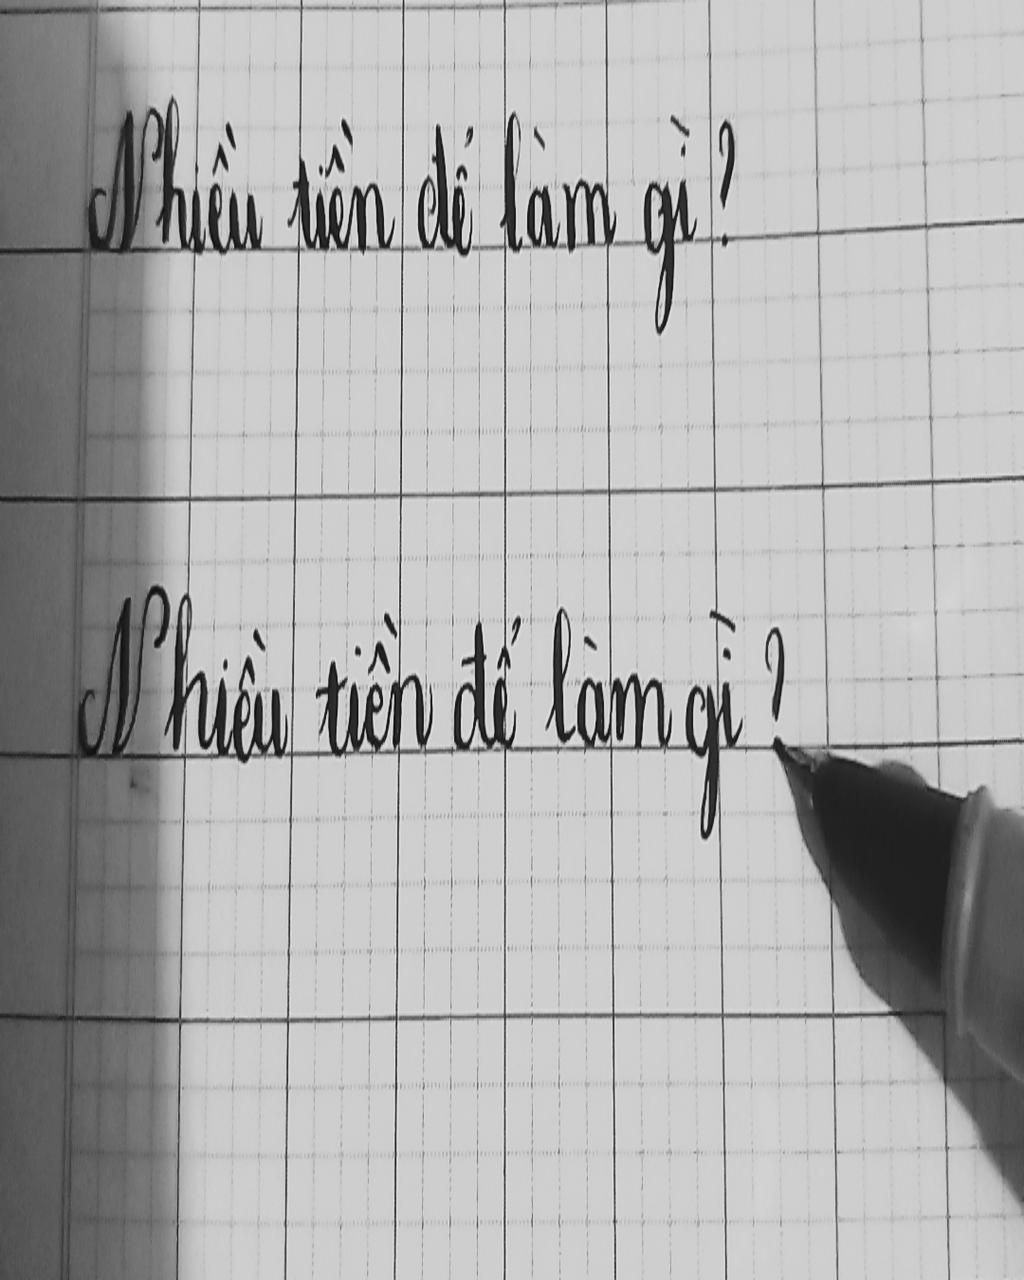 Nhiều tiền để làm gì?
Nhiều tiền để làm gì?